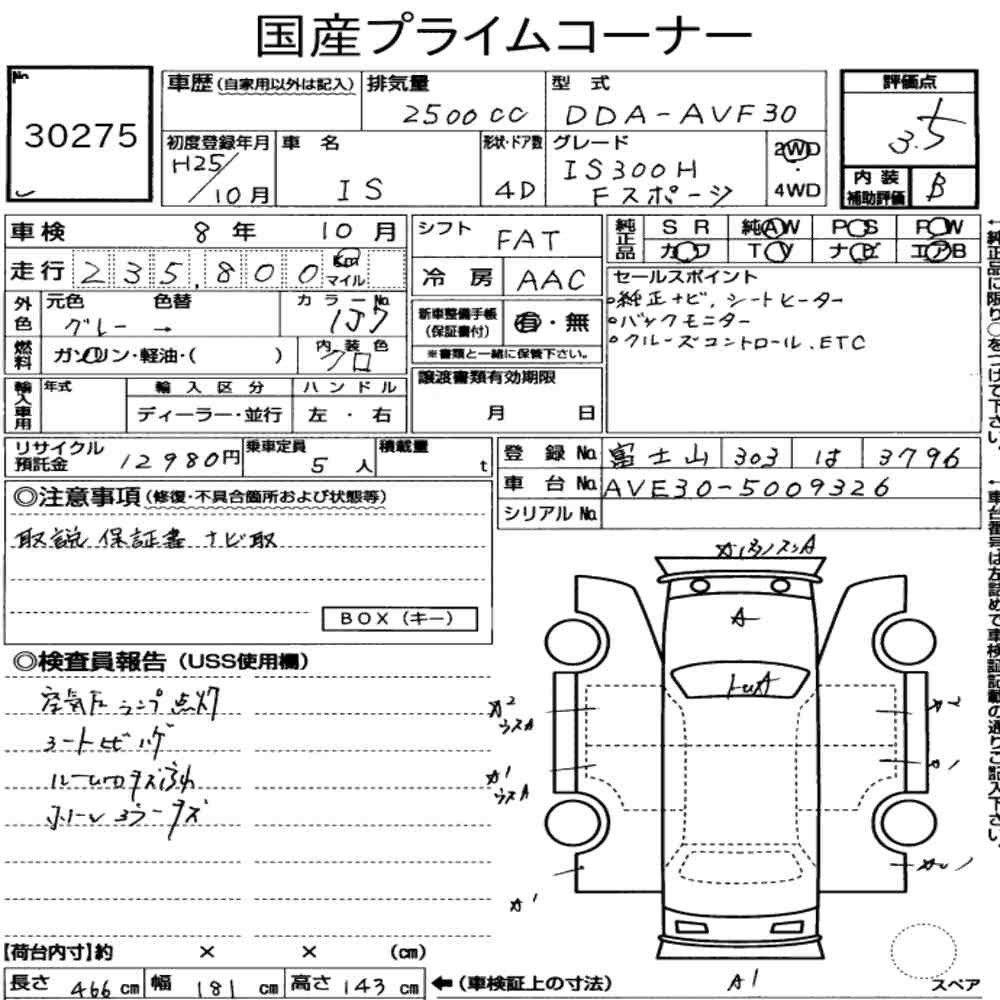 国産プライムコーナー
No.
30275
車歴(自家用以外は記入)
排気量
2500cc
型式
DDA-AVF30
評価点
3.5
初度登録年月
H25/10月
車名
IS
形状・ドア数
4D
グレード
IS300H
Fスポーツ
2WD
・
4WD
内装
補助評価
B
車検 8年 10月
シフト
FAT
純正品
SR 純AW PS PW
カワ TV ナビ エアB
走行 235,800 Km
マイル
冷房 AAC
セールスポイント
○純正ナビ、シートヒーター
○バックモニター
○クルーズコントロール、ETC
外色
元色 色替 カラーNo.
グレー → 1J7
新車整備手帳
(保証書付)
有・無
※書類と一緒に保管下さい。
燃料
ガソリン・軽油・( )
内装色
クロ
譲渡書類有効期限
月 日
輸入車用
年式
輸入区分
ハンドル
ディーラー・並行
左・右
リサイクル
預託金
12980円
乗車定員
5人
積載量
t
登録No. 富士山 303 は 3796
車台No. AVE30-5009326
シリアルNo.
◎注意事項(修復・不具合箇所および状態等)
取説 保証書 ナビ取
BOX(キー)
◎検査員報告(USS使用欄)
空気圧ランプ点灯
A
A2
A1
A1
【荷台内寸】約 × × (cm)
長さ 466cm 幅 181cm 高さ 143cm
←(車検証上の寸法)
スペア
←純正品に限り○をつけて下さい。
←車台番号は左詰めで車検証記載の通りご記入下さい。